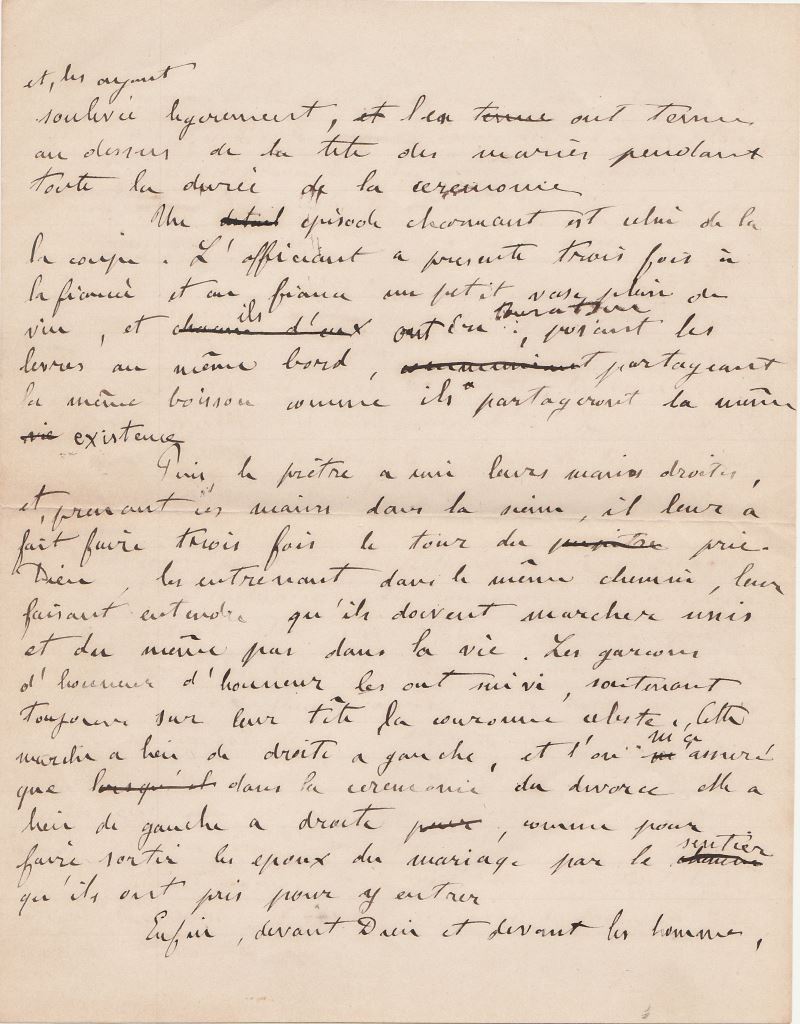 et, les ayant
soulevée légerement, et l'en tenue ont tenue
au dessus de la tête des mariés pendant
toute la durée de la ceremonie
Un détail episode charmant est celui de la
la coupe. L'officiant a presenté trois fois à
la fiancée et au fiancé un petit vase plein de
vin, et chacun d'eux ils ont bu, posant les
levres au même bord, partageant
la même boisson comme ils partageront la même
vie existence
Puis, le prêtre a uni leurs mains droites,
et, prenant ces mains dans la sienne, il leur a
fait faire trois fois le tour du pupitre prie-
Dieu, les entrénant dans le même chemin, leur
faisant entendre qu'ils doivent marcher unis
et du même pas dans la vie. Les garcons
d'honneur d'honneur les ont suivi, soutenant
toujours sur leur tête la couronne celeste. Cette
marche a lieu de droite a gauche, et l'on m'a assuré
que lorsqu'il dans la ceremonie du divorce elle a
lieu de gauche a droite pour, comme pour
faire sortir les epoux du mariage par le chemin sentier
qu'ils ont pris pour y entrer
Enfin, devant Dieu et devant les hommes,